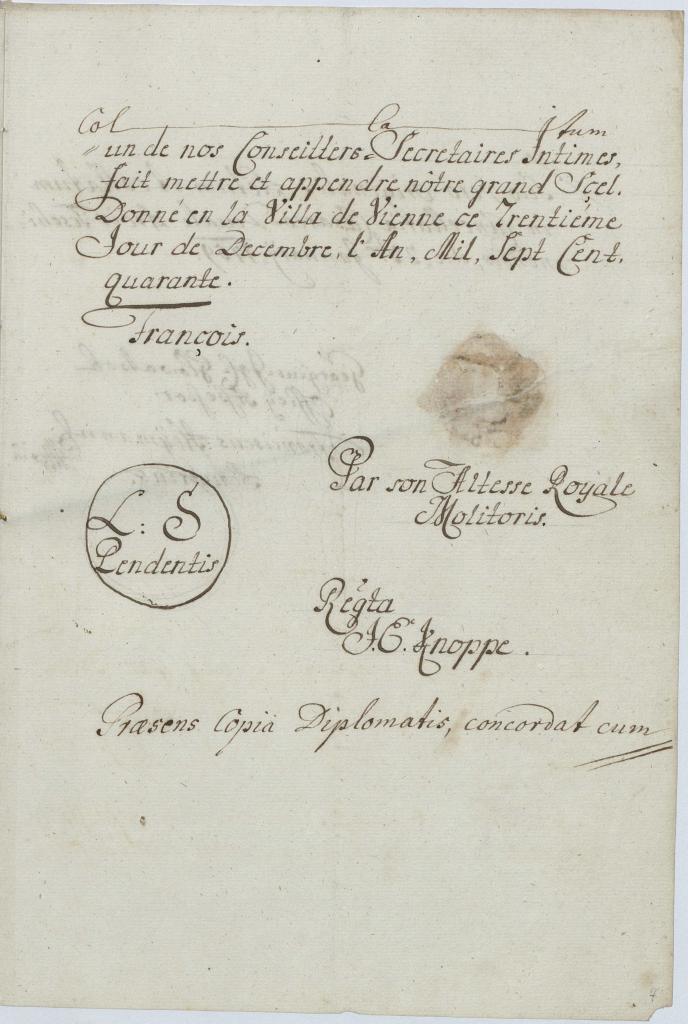 Col la tum
un de nos Conseillers-Secretaires Intimes,
fait mettre et appendre nôtre grand Sçel.
Donné en la Villa de Vienne ce Trentiéme
Jour de Decembre, l'An, Mil, Sept Cent.
quarante.
François.
Par son Altesse Royale
Molitoris.
L: S
Pendentis
Regta
J. E. Knoppe.
Præsens Copia Diplomatis, concordat cum
4